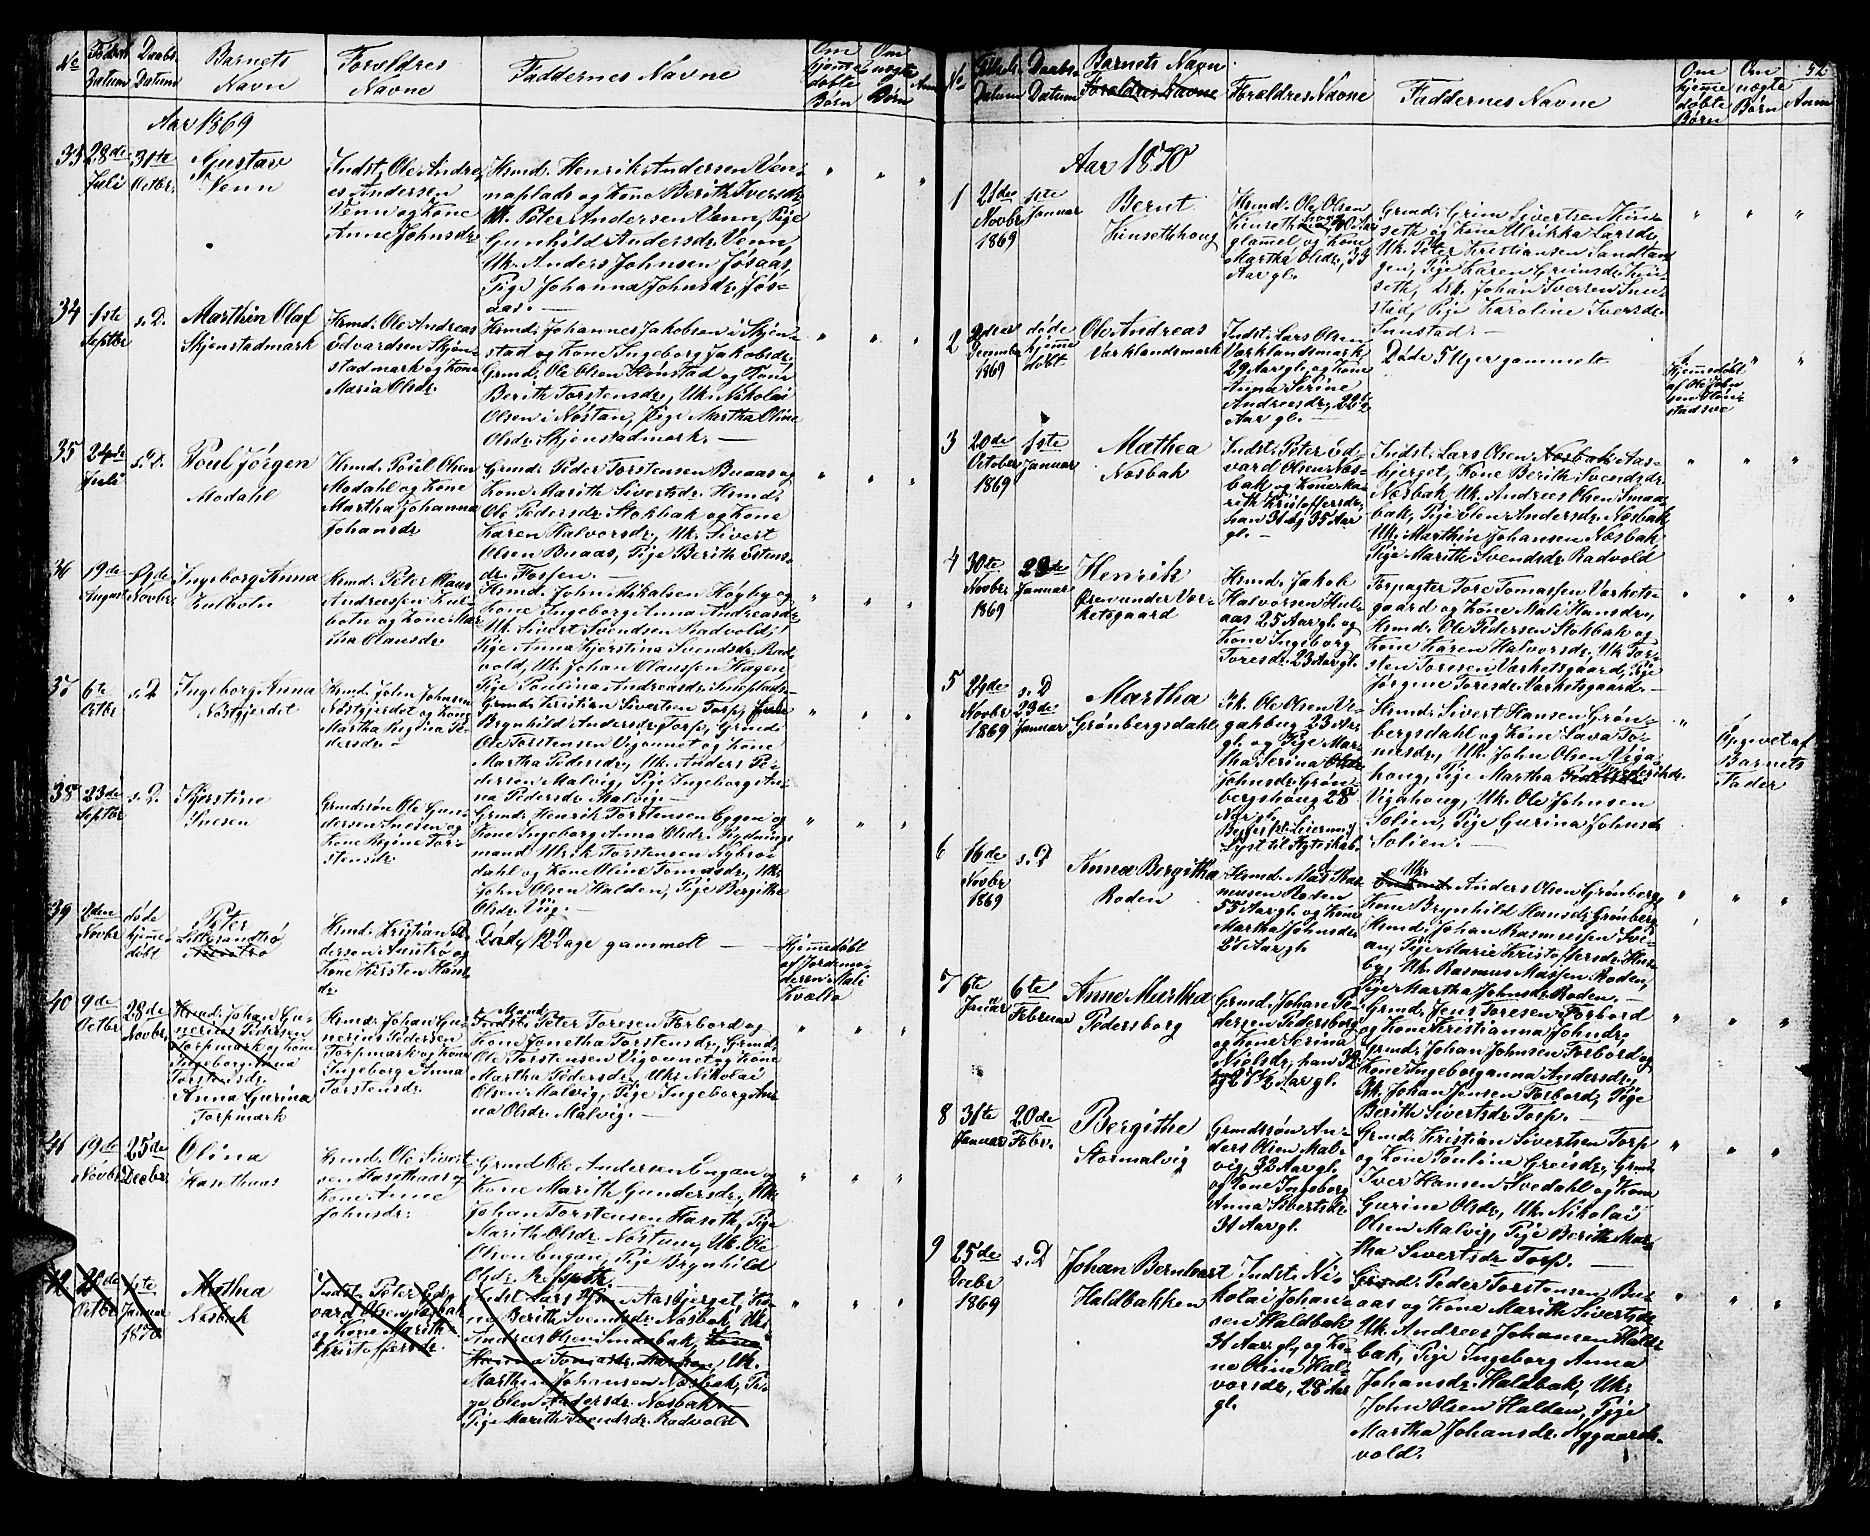 No
Fødsels
Datum
Daabs
Datum
Barnets
Navn
Forældres
Navne
Faddernes Navne
Om
hjemme
døbte
Børn
Om
ægte
Børn
Anm
Aar 1869
33
28de
Juli
31te
Octbr.
Gustav
Venn
Indst. Ole Andre
as Andersen
Venn og Kone
Anne Johnsdr
Hrmd. Henrik Andersen Ven-
naplads og Kone Berith Iversdr
Uk. Peter Andersen Venn, Pige
Gunhild Andersdr. Venn,
Uk. Anders Johnsen Jøsaas,
Pige Johanna Johnsdr. Jøs-
aas. —
34
1ste
Septbr
s. D.
Marthin Olaf
Skjenstadmark
Hrmd. Ole Andreas
Edvardsen Skjen-
stadmark og Kone
Maria Olsdr.
Hrmd. Johannes Jakobsen i Skjen-
stad og Kone Ingeborg Jakobsdr.
Grmd. Ole Olsen Hønstad og Kone
Berith Torstensdr., Uk. Nikolai
Olsen i Nøstan, Pige Martha Olina
Olsdr. Skjenstadmark. —
35
24de
Juli
s. D.
Poul Jørgen
Modahl
Hrmd. Poul Olsen
Modahl og Kone
Martha Johanna
Johansdr
Grmd. Peder Torstensen Buaas og
Kone Marith Sivertsdr. Hrmd.
Ole Pedersdr. Stokbak og Kone
Karen Halvorsdr., Uk. Sivert
Olsen Buaas, Pige Berith Estens-
dr. Fossen. —
36
19de
August
Novbr.
Ingeborg Anna
Hrmd. Peter Claus
Andreassen
og Kone Mar
tha Olausdr
Hrmd. John Nikolsen Høyby og
Kone Ingeborg Anna Andreasdr
Uk. Sivert Svendsen Radvold,
Pige Anna Kjerstina Svendsdr. Rad
vold, Uk. Johan Olaussen Hagen,
Pige Paulina Andreasdr.
37
6te
Octbr
s. D
Ingeborg Anna
Nøstgjerdet
Hrmd. John Johnsen
Nøstgjerdet og Kone
Martha Regina Pe-
dersdr. —
Grmd. Kristian Sivertsen Torp,
Brynhild Andersdr. Torp, Grmd.
Ole Torstensen Vigonnet og Kone
Martha Pedersdr., Uk. Anders Pe-
dersen Malvig, Pige Ingeborg An-
na Pedersdr. Malvig. —
38
23de
Septbr
s. D.
Kjerstine
Snesen
Grmdssøn Ole Gun-
dersen Snesen og
Kone Regine Tor-
stensdr.
Grmd. Henrik Torstensen Eggen og
Kone Ingeborg Anna Olsdr.
mand Ulrik Torstensen
dahl og Kone Oline Tomasdr., Uk.
John Olsen Halden, Pige Bergithe
Olsdr. Viig. —
39
2den
Novbr
døde
hjemme
døbt
Peter
Hrmd. Kristian
dersen og
Kone Kirsten Hans
dr.
Døde, 12 Dage gammelt —
Hjemmedøbt
af Jordemo-
deren Mali
Kvello
40
9de
Octbr
28de
Novbr.
Hrmd. Johan Gu-
nerius Pedersen
Torpmark og Kone
Ingeborg Anna
Torstensdr.
Anna Gurina
Torpmark
Hrmd. Johan Gu-
nerius Pedersen
Torpmark og Kone
Ingeborg Anna
Torstensdr.
Peter Toresen Forbord og
Kone Janetha Torstensdr., Grmd.
Ole Torstensen Vigonnet og Kone
Martha Pedersdr., Uk. Nikolai
Olsen Malvig, Pige Ingeborg An-
na Olsdr. Malvig. —
41
19de
Novbr
25de
Decbr.
Olina
Hasethaas
Hrmd. Ole Sivert-
sen Hasethaas og
Kone Anne
Johnsdr.
Grmd Ole Andersen Engan og
Kone Marith Gundersdr., Uk.
Johan Torstensen Haseth, Pige
Marith Olsdr Nøstum, Uk. Ole
Olsen Engan, Pige Brynhild
Olsdr.
42
20de
Octbr
1ste
Januar
1870
Mathea
Næsbak
Indst. Peter Ed-
vard Olsen Næsbak
og Kone Marith
Kristoffersdr.
Indst. Lars Olsen Aasbjerget, Ko-
ne Berith Svendsdr. Næsbak, Uk.
Andreas Olsen Smaabak, Kone
Hanna Tomasdr. Uk.
Marthin Johansen Næsbak, Pi-
ge Elen Andersdr. Næsbak,
Pige Marith Svendsdr. Radvold
52
No
Fødsels
Datum
Daabs
Datum
Barnets Navn
Forældres Navne
Forældres Navne
Faddernes Navne
Om
hjemme
døbte
Børn
Om
uægte
Børn
Anm
Aar 1870
1
21de
Novbr
1869
1ste
Januar
Bernt
Kinsethhoug
Hrmd. Ole Olsen
Kinseth
gammel og Kone
Martha Olsdr., 33
Aar gl.
Grmd. Grim Sivertsen Kin-
seth og Kone Ulrikka Larsdr.,
Uk. Peter Kristiansen Sandtan
gen, Pige Karen Grimsdr. Kin
seth, Uk. Johan Iversen Sne-
stad, Pige Karoline Iversdr.
Snustad. —
2
Decembr
1869
døde
hjemme
døbt
Ole Andreas
Varklandsmark
Indst. Lars Olsen
Varklandsmark
29 Aar gl. og Kone
Anna Serine
Andreasdr., 22½
Aar gl. —
Døde 5 Uger gammelt
Hjemmedøbt
af Ole John
sen
3
20de
October
1869
1ste
Januar
Mathea
Næsbak
Indst. Peter Ed-
vard Olsen Næs-
bak og Kone Ma-
rith Kristoffersdr,
han 31 og 35 Aar
gl. —
Indst. Lars Olsen Næsbak Aas-
bjerget, Kone Berith Svendsdr.
Næsbak, Uk. Andreas Olsen Smaa
bak, Pige Elen Andersdr. Næsbak
Uk. Marthin Johansen Næsbak
Pige Marith Svendsdr Radvold
4
30te
Novbr.
1869
Januar
Henrik
Øren under Var-
ketsgaard
Hrmd. Jakob
Halvorsen Hul-
aas 25 Aar gl. og
Kone Ingeborg
Toresdr. 23 Aar gl.
Forpagter Tore Tomassen Varkets-
gaard og Kone Mali Hansdr.,
Hrmd. Ole Pedersen Stokbak og
Kone Karen Halvorsdr., Uk. Tor-
sten Toresen Varketsgaard, Pige
Jørgine Toresdr. Varketsgaard. —
5
24de
Novbr
1869
s. D
23de
Januar
Martha
Grønbergsdahl
Uk. Ole Olsen Ve-
23 Aar
gl. og Pige Mar-
tha Serina Olsdr.
Johnsdr. Grøn-
bergshaug 28
Aar gl.
Lyst til Ægteskab.
Hrmd. Sivert Hansen Grøn-
bergsdahl og Kone Lava To-
masdr., Uk. John Olsen Viga
houg, Pige Martha
Vigahoug, Uk. Ole Johnsen
Solien, Pige Gurina Johnsdr
Solien. —
Opgivet af
Barnets
Fader
6
16de
Novbr
1869
s. D
Anna Bergitha
Roden
Hrmd. Mas Ras-
musen Roden
55 Aar gl. og Kone
Martha Johnsdr
Aar gl.
Uk.
Anders Olsen Grønberg,
Kone Brynhild Hansdr Grønberg
Hrmd. Johan Rasmussen Svi-
an, Pige Marie Kristoffersdr. Hus-
by, Uk. Rasmus Massen Roden,
Pige Martha Johnsdr. Roden. —
7
6te
Januar
6te
Februar
Anne Martha
Pedersborg
Grmd. Johan Pe-
dersen Pedersborg
og Kone Serina
Nielsdr., han 32
og 27½ Aar gl.
Grmd. Jens Toresen Forbord
og Kone Kristianna Johnsdr.,
Grmd. Johan Johnsen Forbord og
Kone Ingeborganna Andersdr.,
Uk. Johan Jensen Forbord, Pige
Berith Sivertsdr Torp. —
8
31te
Januar
20de
Febr.
Bergithe
Stormalvig
Grmdssøn An-
ders Olsen Mal-
vig, 32 Aar gl.
og Kone Ingeborg
Anna Sivertsdr
31 Aar gl.
Grmd. Kristian Sivertsen Torp
og Kone Pauline Greisdr., Grmd.
Iver Hansen Svedahl og Kone
Gurine Olsdr., Uk. Nikolai
Olsen Malvig, Pige Berith Mar-
tha Sivertsdr Torp. —
9
25de
Decbr
1869
s. D
Johan Bernhart
Haldbakken
Indst. Ni-
kolai Johan-
sen Haldbak
31 Aar gl., og Ko-
ne Olina Hal-
vorsdr, 28 Aar
gl.
Grmd. Peder Torstensen Bu-
aas og Kone Marith Sivertsdr
Uk. Andreas Johansen Hald-
bak, Pige Ingeborg Anna
Johansdr. Haldbak, Uk.
John Olsen Halden, Pige
Martha Johansdr. Nygaards-
vold.